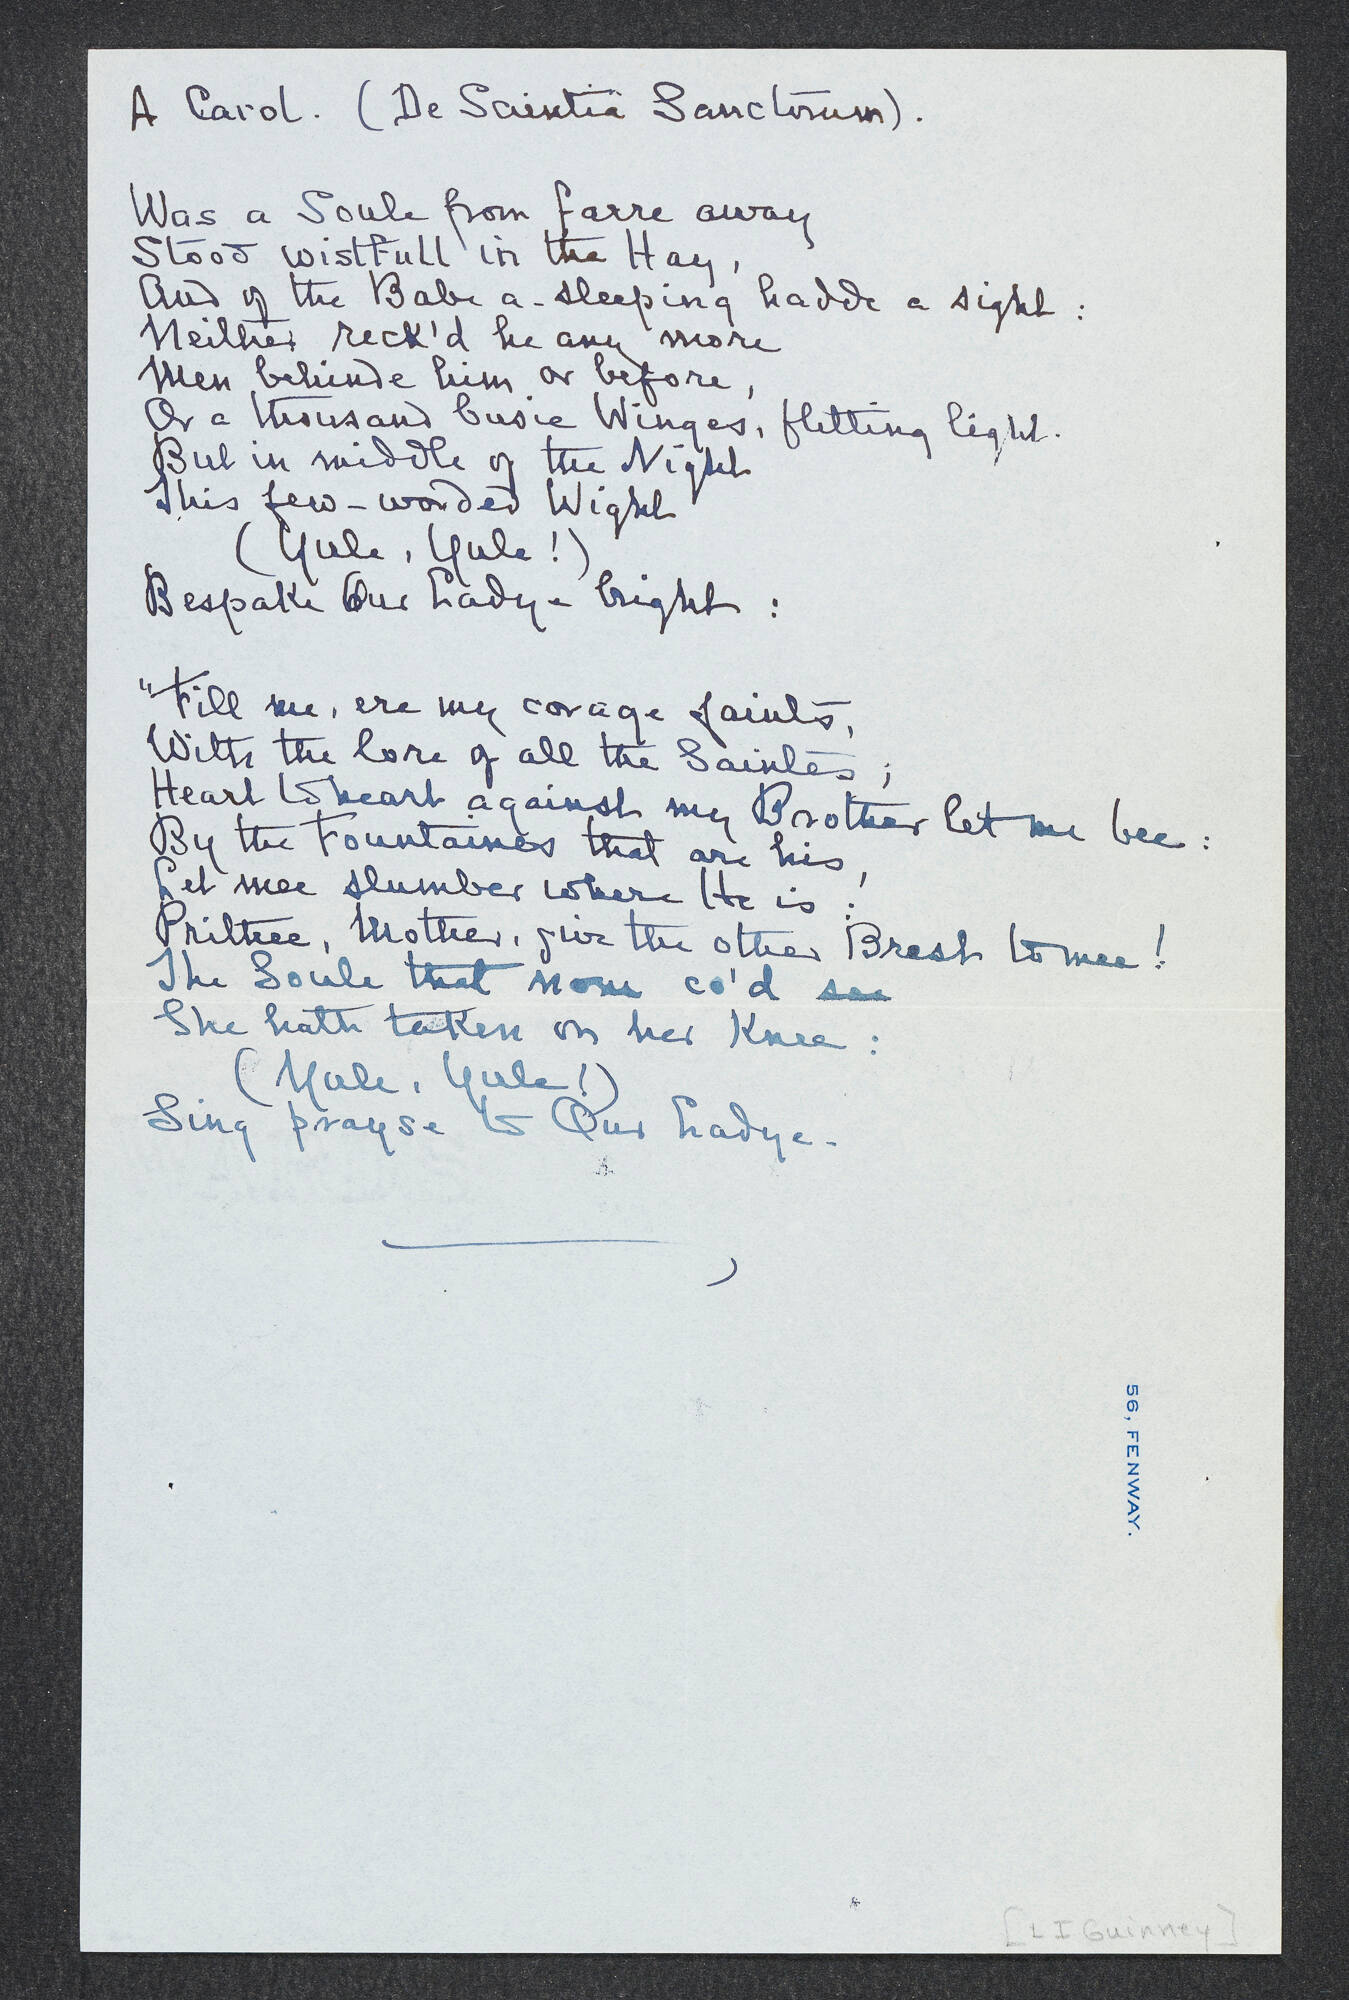 A Carol. (De Scientiâ Sanctorum).
Was a Soule from farre away
Stood wistfull in the Hay,
And of the Babe a-sleeping hadde a sight:
Neither reck'd he any more
Men behinde him or before,
Or a thousand busie Winges, flitting light.
But in middle of the Night
This few-worded Wight
(Yule, Yule!)
Bespake Our Ladye bright:
"Fill me, ere my corage faints,
With the lore of all the Saintes;
Heart to heart against my Brother let me bee:
By the Fountaines that are his,
Let mee slumber where He is:
Prithee, Mother, give the other Brest to mee!
The Soule that none co'd see
She hath taken on her Knee:
(Yule, Yule!)
Sing prayse to Our Ladye.
56, FENWAY.
[L I Guinney]